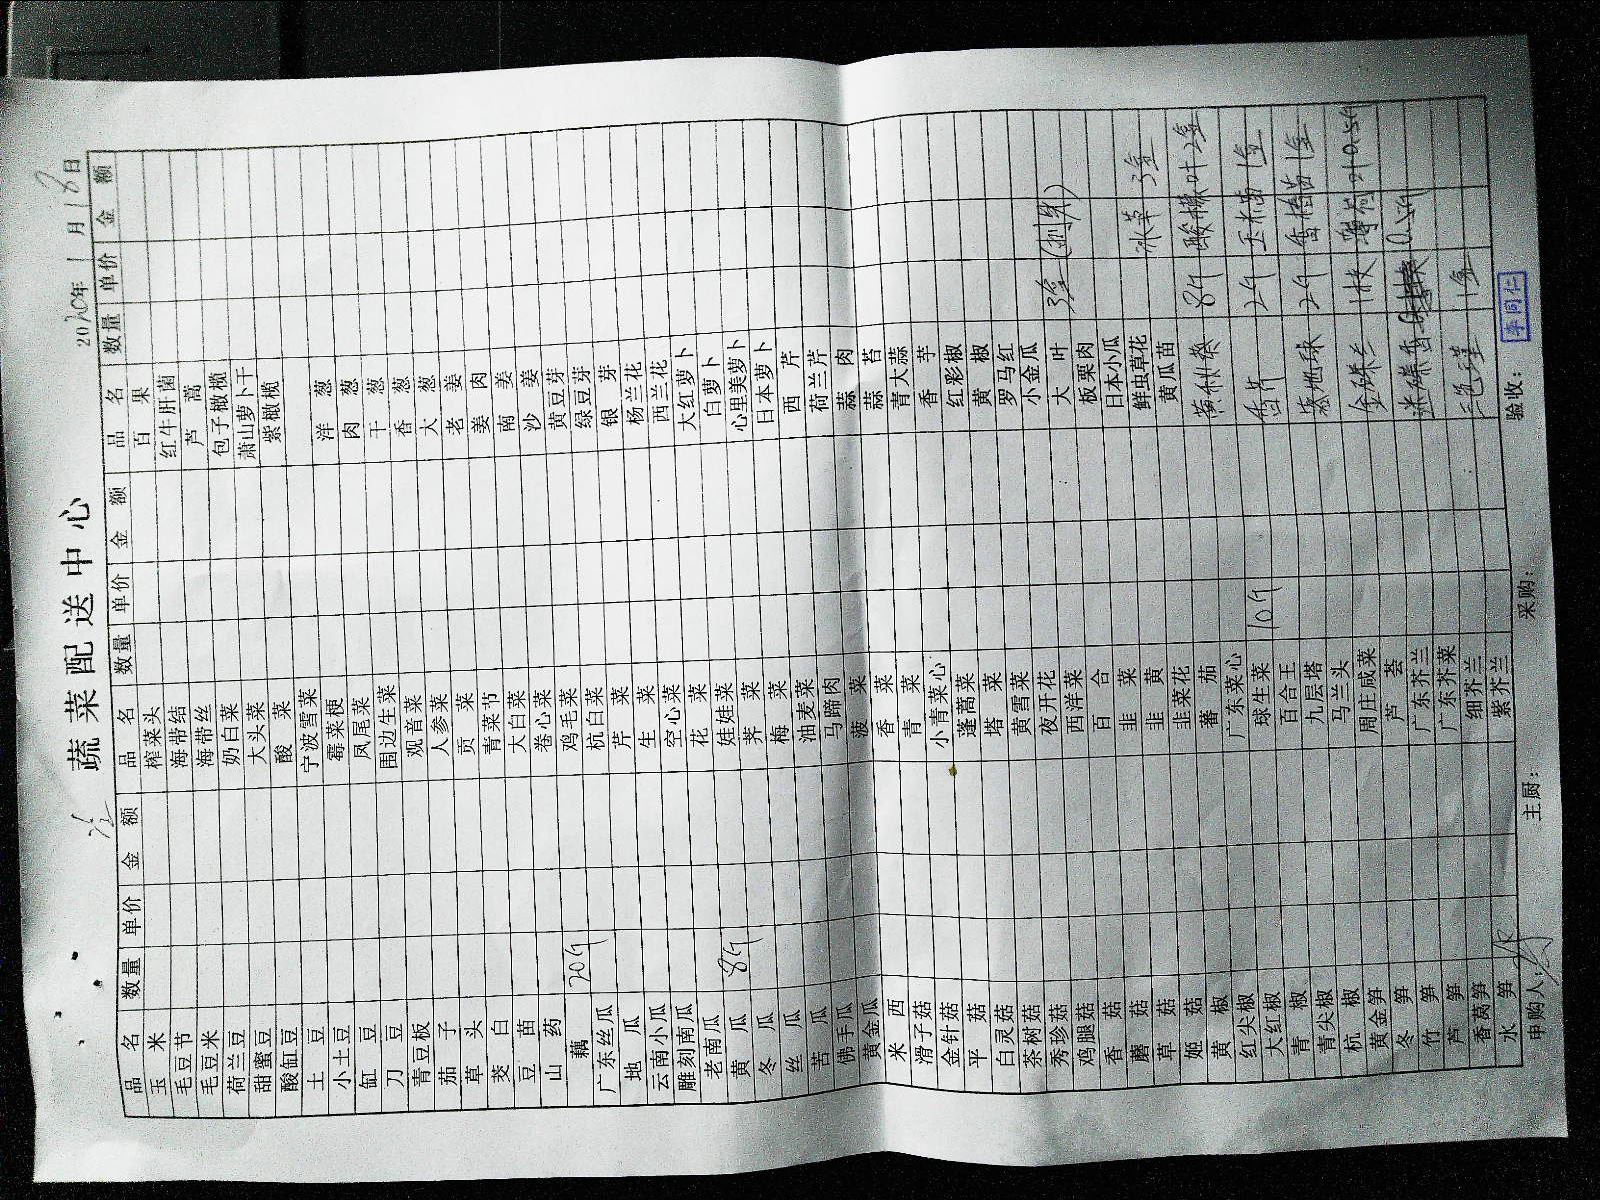 蔬菜配送中心
2020年1月18日
品名 数量 单价 金额 品名 数量 单价 金额 品名 数量 单价 金额
玉米 榨菜头 百果
毛豆节 海带结 红牛肝菌
毛豆米 海带丝 芦蒿
荷兰豆 奶白菜 包子橄榄
甜蜜豆 大头菜 萧山萝卜干
酸缸豆 酸菜 紫橄榄
土豆 宁波雪菜
小土豆 霉菜梗 洋葱
缸豆 凤尾菜 肉葱
刀豆 围边生菜 干葱
青豆板 观音菜 香葱
茄子 人参菜 大葱
草头 贡菜 老姜
茭白 青菜节 姜肉
豆苗 大白菜 南姜
山药 卷心菜 沙姜
藕 20斤 鸡毛菜 黄豆芽
广东丝瓜 杭白菜 绿豆芽
地瓜 芹菜 银芽
云南小瓜 生菜 杨兰花
雕刻南瓜 空心菜 西兰花
老南瓜 花菜 大红萝卜
黄瓜 8斤 娃娃菜 白萝卜
冬瓜 荠菜 心里美萝卜
丝瓜 梅菜 日本萝卜
苦瓜 油麦菜 西芹
佛手瓜 马蹄肉 荷兰芹
黄金瓜 菠菜 蒜肉
米西 香菜 蒜苔
滑子菇 青菜 青大蒜
金针菇 小青菜心 香芋
平菇 蓬蒿菜 红彩椒
白灵菇 塔菜 黄椒
茶树菇 黄雪菜 罗马红
秀珍菇 夜开花 小金瓜
鸡腿菇 西洋菜 大叶 3盒(刺身)
香菇 百合 板栗肉
蘑菇 韭菜 日本小瓜
草菇 韭黄 鲜虫草花 冰草 3盒
姬菇 韭菜花 黄瓜苗
黄椒 蕃茄 黄秋葵 8斤 酸模叶2盒
红尖椒 广东菜心
大红椒 球生菜 10斤 香芹 2斤 玉米苗1盒
青椒 百合王
青尖椒 九层塔 2斤 香椿苗1盒
杭椒 马兰头
黄金笋 周庄咸菜 1扎 薄荷叶0.5斤
冬笋 芦荟
竹笋 广东芥兰 迷殊香 0.5斤
芦笋 广东芥菜
香莴笋 细芥兰 三色堇 1盒
水笋 紫芥兰
申购人: 主厨: 采购: 验收: 李同仁